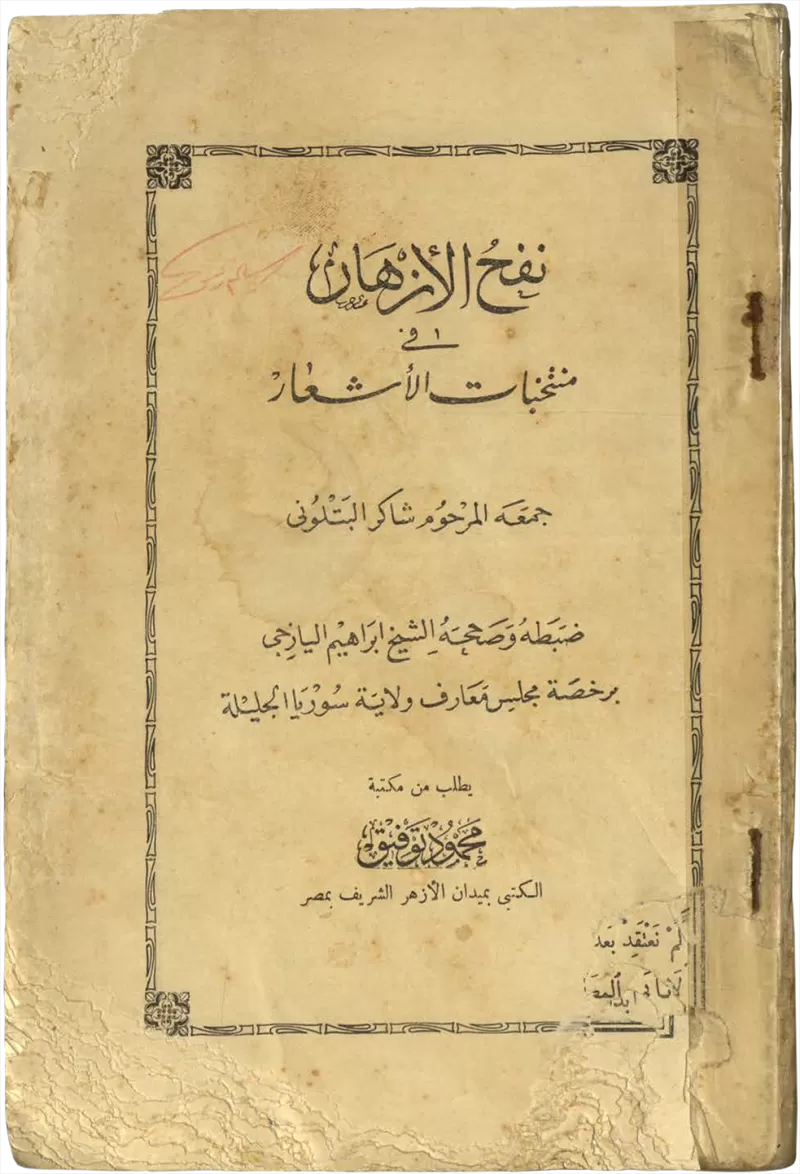 نفحُ الأزهَار
في
منتخبات الأشعار
جمعَه المرحُوم شاكر البَتْلُونى
ضبَطهُ وَصَححَهُ الشيخ ابرَاهيْم اليَازجى
برخصَة مجلس مَعَارف ولايَة سُوْريَا الجليْلة
يطلب من مكتبة
محمُوْد تَوفيْق
الكتبى بميدان الأزهر الشريف بمصر
لَمْ نَعْتَقِدْ بَعد